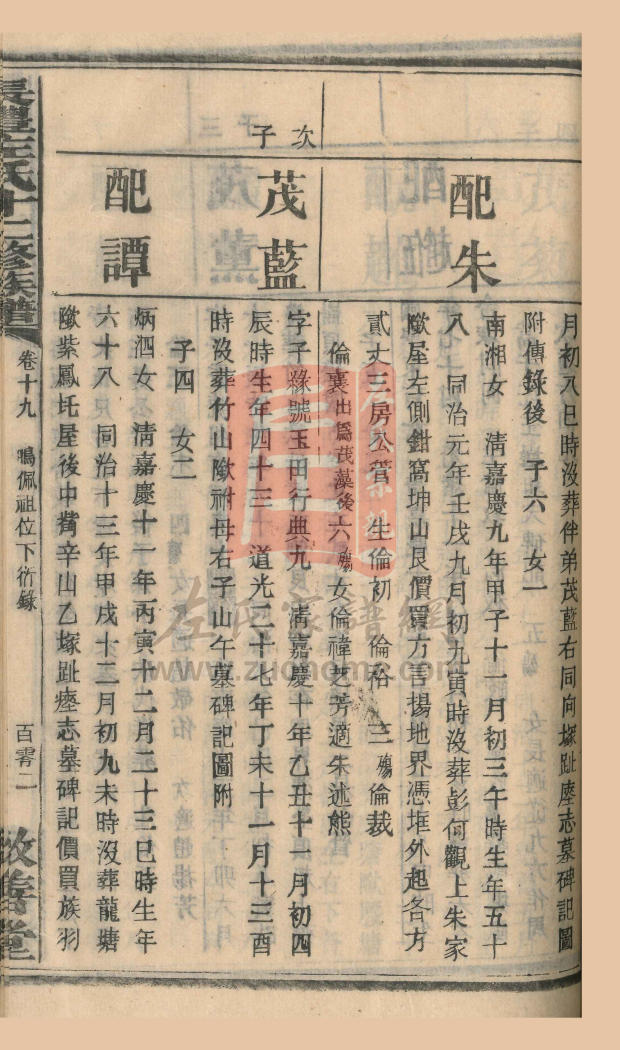 月初八巳時沒葬伴弟茂藍右同向塚趾㙠志墓碑記圖
附傳錄後　子六　女一
配朱
南湘女　淸嘉慶九年甲子十一月初三午時生年五十
八　同治元年壬戌九月初九寅時沒葬彭何觀上朱家
屋左側鉗窩坤山艮價買方言揚地界憑堆外起各方
貳丈三房公管　生倫初　倫裕　三殤倫裁
倫裏出爲茂藻後六殤女倫禕芝芳適朱述熊
次子
茂藍
字子綠號玉田行典九　淸嘉慶十年乙丑十一月初四
辰時生年四十三　道光二十七年丁未十一月十三酉
時沒葬竹山祔母右子山午墓碑記圖附
子四　女二
配譚
炳泗女　淸嘉慶十一年丙寅十二月二十三巳時生年
六十八　同治十三年甲戌十二月初九未時沒葬龍塘
紫鳳圫屋後中辛山乙塚趾㙠志墓碑記價買族羽
長豐左氏十二修族譜
卷十九　鳴佩祖位下衍錄
百零二
敦善堂
左氏家譜網
www.zuohome.com